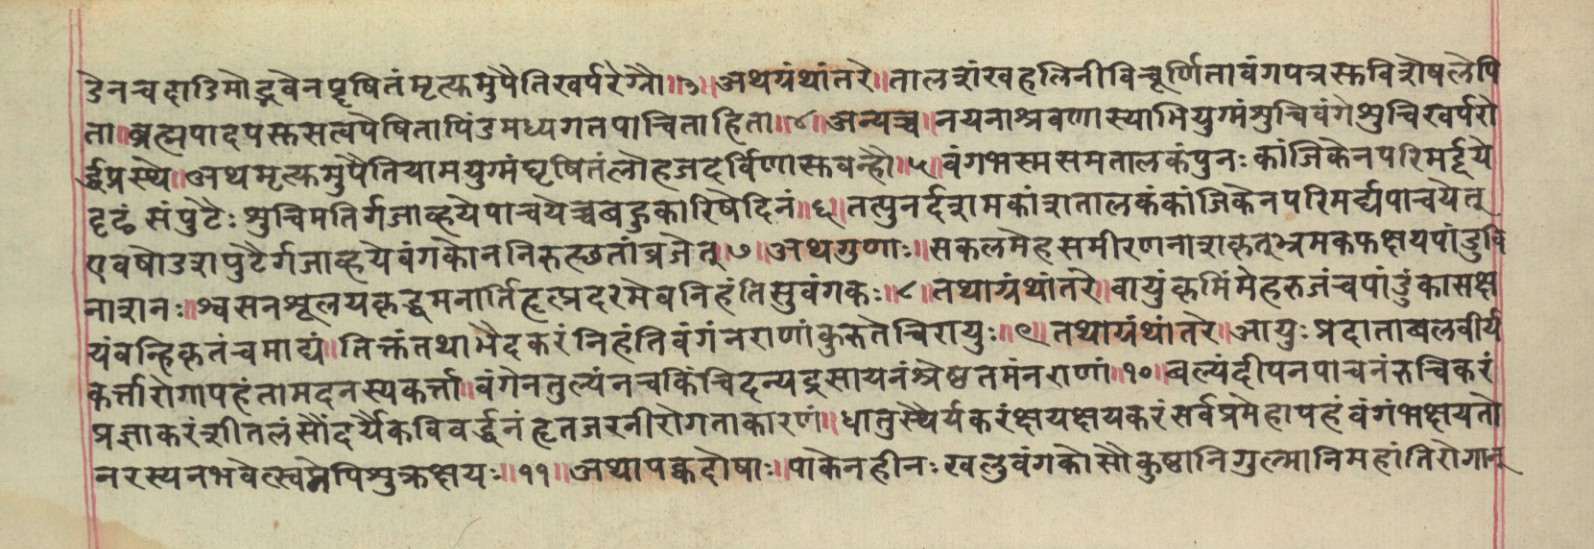 डेनचदाडिमोद्भवेनघृषितंमृत्कमुपैतिखर्परेग्नौ॥३॥अथग्रंथांतरे॥तालशंखहलिनीविचूर्णितावंगपत्रस्कविशेषलेपि
ता॥ब्रह्मपादपस्कसत्वपेषितापिंडमध्यगतपाचिताहिता॥४॥अन्यच्च॥नयनाश्रवणास्याभियुग्मंशुचिवंगेशुचिखर्परो
र्द्धप्रस्थे॥अथमृत्कमुपैतियामयुग्मंघृषितंलौहजदर्विणास्कवन्हौ॥५॥वंगभस्मसमतालकंपुनःकांजिकेनपरिमर्द्दये
दृढं संपुटैःशुचिमतिर्गजाव्हयेपाचयेच्चबहुकारिषेदिनं॥६॥तत्पुनर्दशमकांशतालकंकांजिकेनपरिमर्द्यपाचयेत्
एवषोडशपुटैर्गजाव्हयेवंगकोननिरुत्छतांव्रजेत्॥७॥अथगुणाः॥सकलमेहसमीरणनाशकृत्भ्रमकफक्षयपांडुवि
नाशनः॥श्वसनशूलयकृद्धमनार्तिहृत्प्रदरमेवनिहंतिसुवंगकः॥८॥तथाग्रंथांतरे॥वायुंकृमिंमेहरुजंचपांडुंकासक्ष
यंवन्हिकृतंचमाद्यं॥तिक्तंतथाभेदकरंनिहंतिवंगंनराणांकुरुतेचिरायुः॥९॥तथाग्रंथांतरे॥आयुःप्रदाताबलवीर्य
कर्त्तारोगापहंतामदनस्यकर्त्ता॥वंगेनतुल्यंनचकिंचिदन्यद्रसायनंश्रेष्ठतमंनराणां॥१०॥बल्यंदीपनपाचनंरुचिकरं
प्रज्ञाकरंशीतलंसौंदर्यैकविवर्द्धनंहृतजरनीरोगताकारणं॥धातुस्थैर्यकरंक्षयक्षयकरंसर्वप्रमेहापहंवंगंभक्षयतो
नरस्यनभवेत्स्वप्नेपिशुक्रक्षयः॥११॥अथापक्वदोषाः॥पाकेनहीनःखलुवंगकोसौकुष्ठानिगुल्मानिमहांतिरोगान्